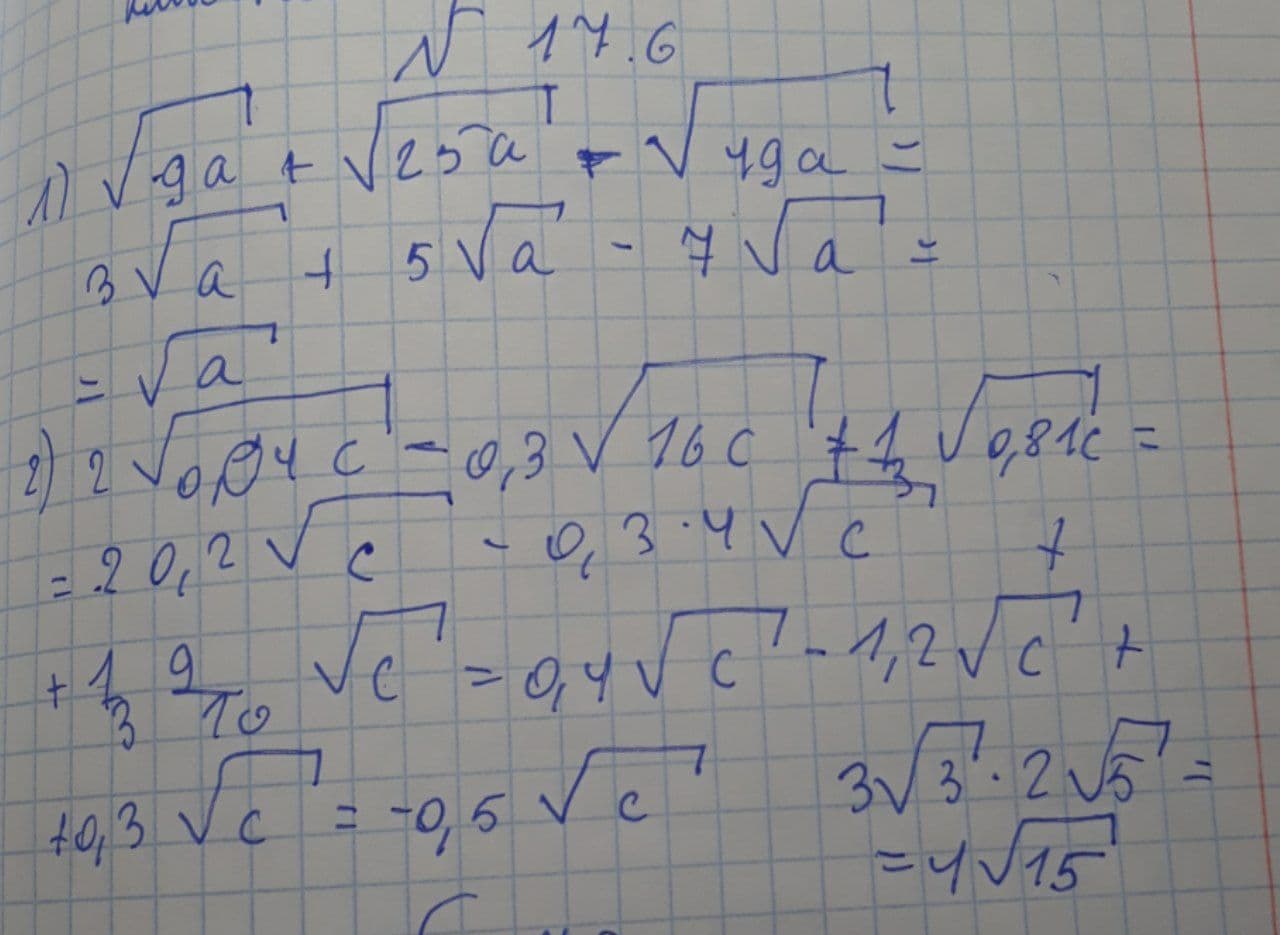 N 17.6
1) √9a + √25a - √49a =
3√a + 5√a - 7√a =
= √a
2) 2√0,04c - 0,3√16c + 1/3 √0,81c =
= 2 0,2√c - 0,3·4√c +
+ 1/3 9/10 √c = 0,4√c - 1,2√c +
+0,3√c = -0,5√c
3√3 · 2√5 =
= 4√15